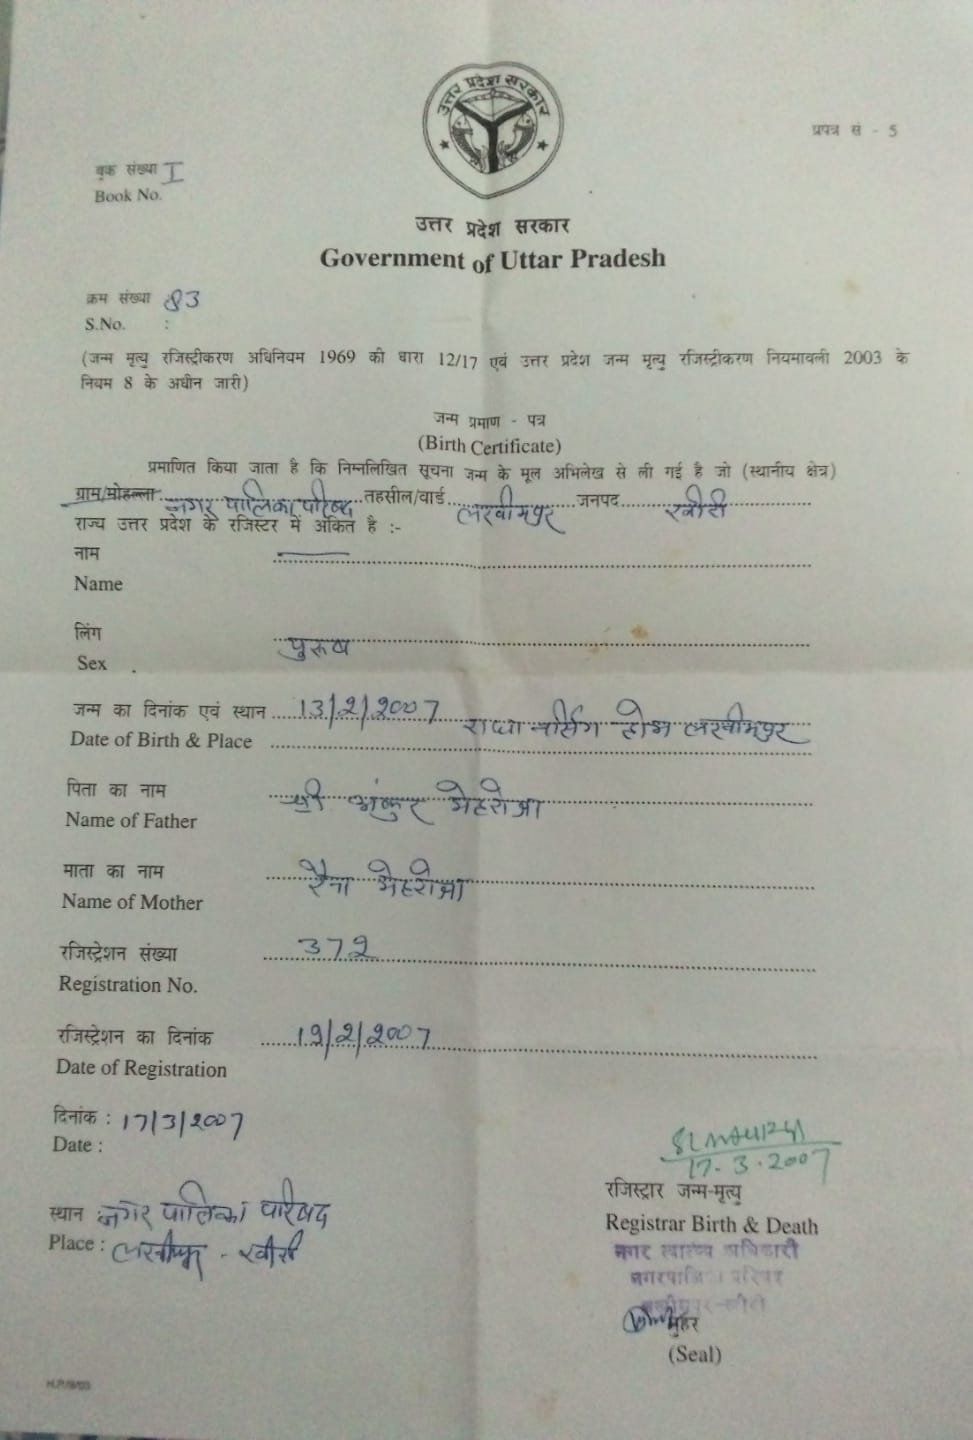 उत्तर प्रदेश सरकार
प्रपत्र सं - 5
बुक संख्या I
Book No.
उत्तर प्रदेश सरकार
Government of Uttar Pradesh
क्रम संख्या 83
S.No. :
(जन्म मृत्यु रजिस्ट्रीकरण अधिनियम 1969 की धारा 12/17 एवं उत्तर प्रदेश जन्म मृत्यु रजिस्ट्रीकरण नियमावली 2003 के
नियम 8 के अधीन जारी)
जन्म प्रमाण - पत्र
(Birth Certificate)
प्रमाणित किया जाता है कि निम्नलिखित सूचना जन्म के मूल अभिलेख से ली गई है जो (स्थानीय क्षेत्र)
ग्राम/मोहल्ला नगर पालिका परिषद तहसील/वार्ड लखीमपुर जनपद खीरी
राज्य उत्तर प्रदेश के रजिस्टर में अंकित है :-
नाम
Name
लिंग पुरूष
Sex
जन्म का दिनांक एवं स्थान 13/2/2007 राधा नर्सिंग होम लखीमपुर
Date of Birth & Place
पिता का नाम श्री अंकुर मेहरोत्रा
Name of Father
माता का नाम रैना मेहरोत्रा
Name of Mother
रजिस्ट्रेशन संख्या 372
Registration No.
रजिस्ट्रेशन का दिनांक 19/2/2007
Date of Registration
दिनांक : 17/3/2007
Date :
17-3-2007
रजिस्ट्रार जन्म-मृत्यु
Registrar Birth & Death
स्थान नगर पालिका परिषद
Place : लखीमपुर - खीरी
नगर स्वास्थ्य अधिकारी
नगरपालिका परिषद
लखीमपुर-खीरी
मुहर
(Seal)